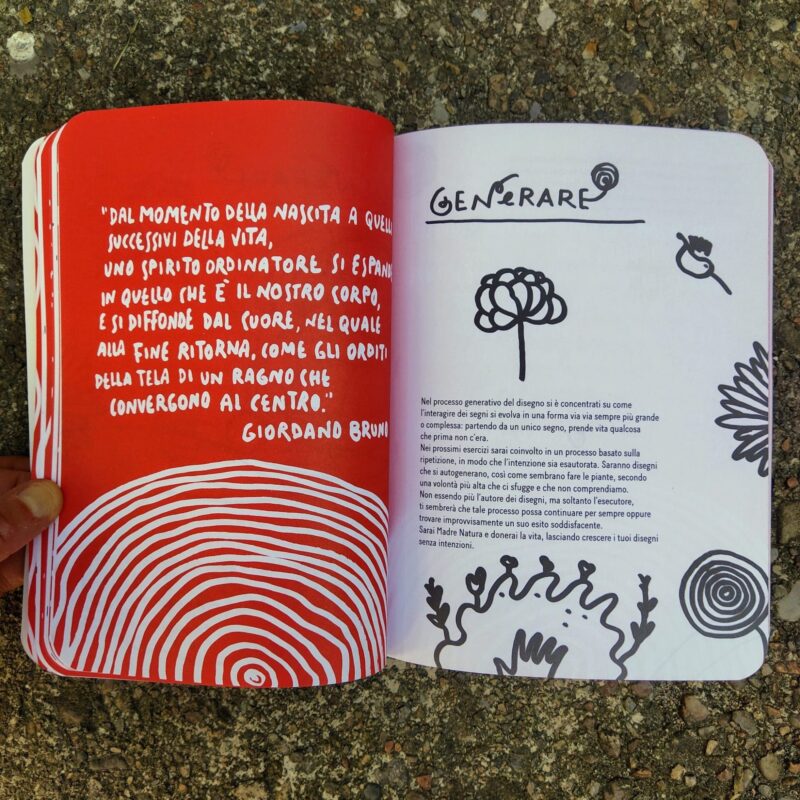 "DAL MOMENTO DELLA NASCITA A QUELLI
SUCCESSIVI DELLA VITA,
UNO SPIRITO ORDINATORE SI ESPANDE
IN QUELLO CHE È IL NOSTRO CORPO,
E SI DIFFONDE DAL CUORE, NEL QUALE
ALLA FINE RITORNA, COME GLI ORDITI
DELLA TELA DI UN RAGNO CHE
CONVERGONO AL CENTRO."
GIORDANO BRUNO
GENERARE
Nel processo generativo del disegno si è concentrati su come
l'interagire dei segni si evolva in una forma via via sempre più grande
o complessa: partendo da un unico segno, prende vita qualcosa
che prima non c'era.
Nei prossimi esercizi sarai coinvolto in un processo basato sulla
ripetizione, in modo che l'intenzione sia esautorata. Saranno disegni
che si autogenerano, così come sembrano fare le piante, secondo
una volontà più alta che ci sfugge e che non comprendiamo.
Non essendo più l'autore dei disegni, ma soltanto l'esecutore,
ti sembrerà che tale processo possa continuare per sempre oppure
trovare improvvisamente un suo esito soddisfacente.
Sarai Madre Natura e donerai la vita, lasciando crescere i tuoi disegni
senza intenzioni.